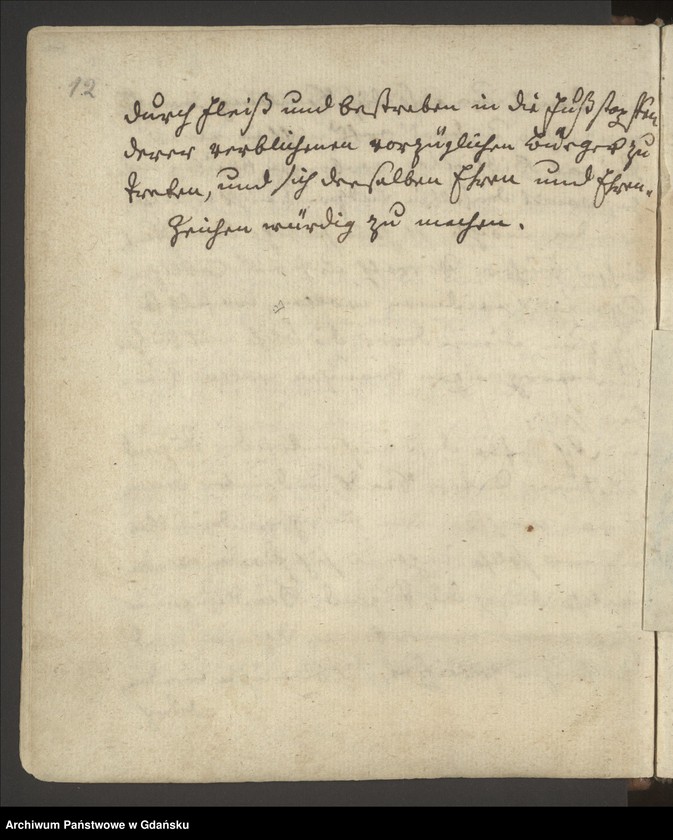 12
durch Fleiß und bestreben in die Fußstapffen
derer verblichenen vorzüglichen Bürger zu
tretten, und sich derselben Ehren und Ehren-
Zeichen würdig zu machen.
Archiwum Państwowe w Gdańsku